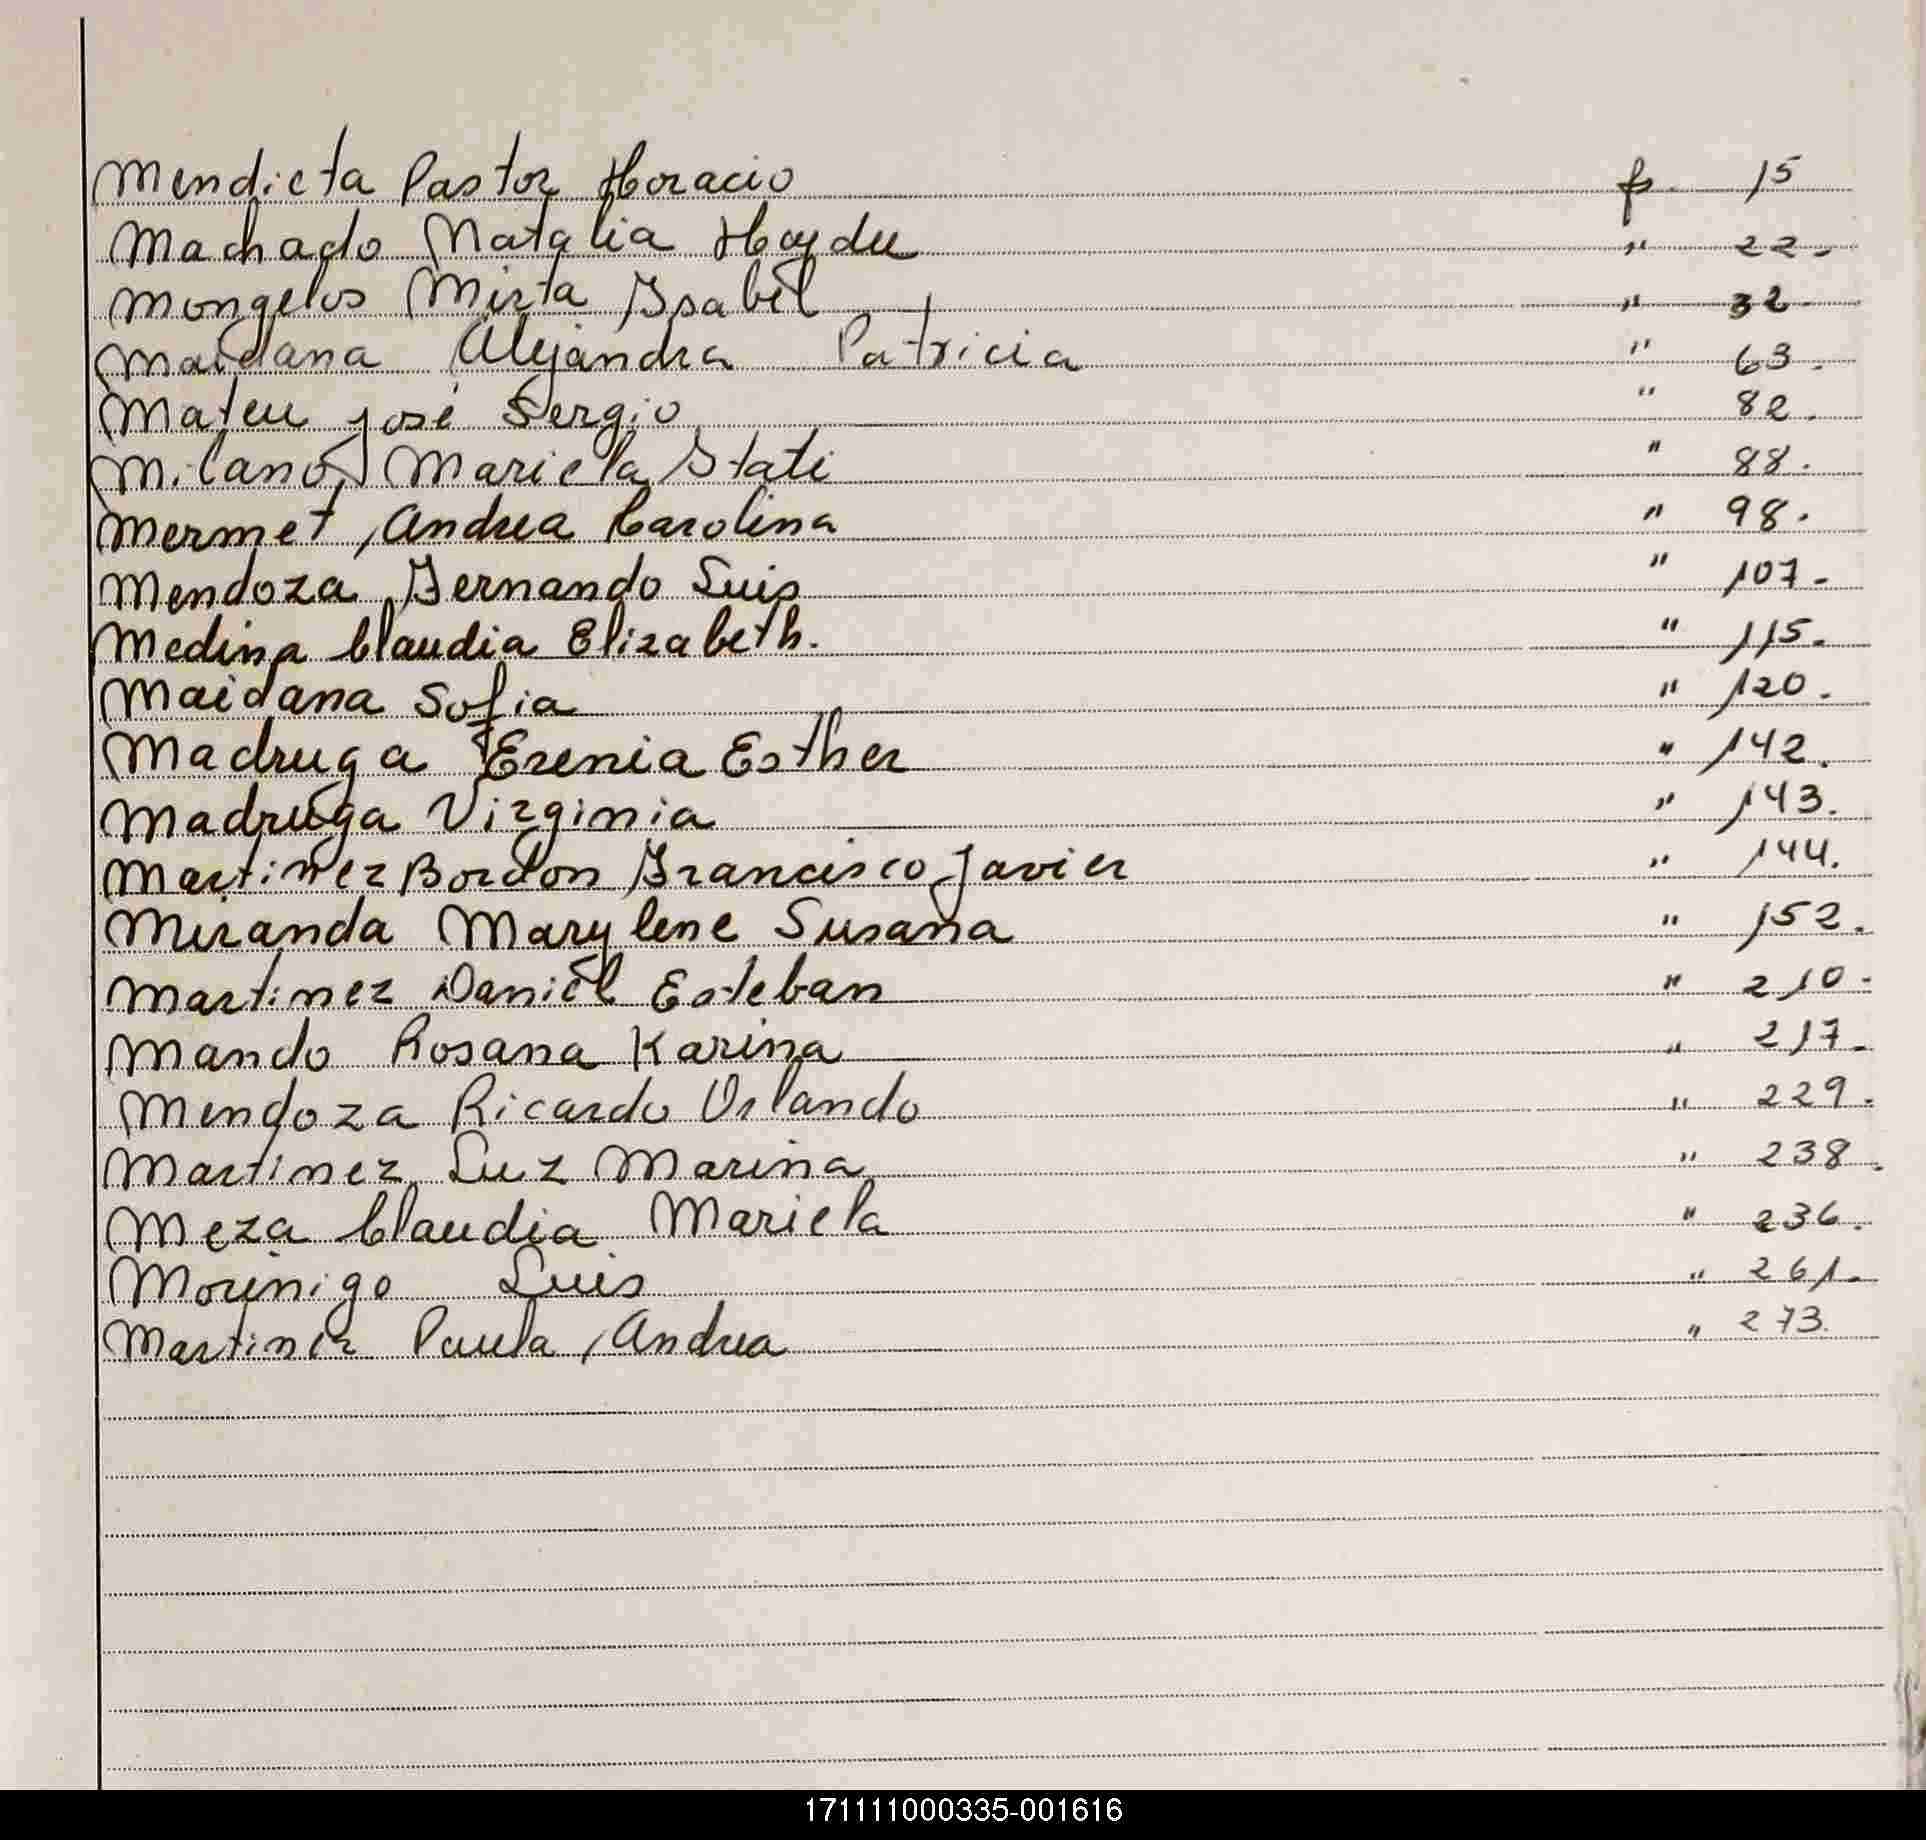 Mendieta Pastor Horacio f. 15
Machado Natalia Haydee " 22.
Mongelos Mirta Ysabel " 32.
Maidana Alejandra Patricia " 63.
Mateu José Sergio " 82.
Milano Mariela Itati " 88.
Mermet Andrea Carolina " 98.
Mendoza Fernando Luis " 107.
Medina Claudia Elizabeth. " 115.
Maidana Sofia " 120.
Madruga Erenia Esther " 142.
Madruga Virginia " 143.
Martinez Bordon Francisco Javier " 144.
Miranda Marylene Susana " 152.
Martinez Daniel Esteban " 210.
Mando Rosana Karina " 217.
Mendoza Ricardo Orlando " 229.
Martinez Luz Marina " 238.
Meza Claudia Mariela " 236.
Morinigo Luis " 261.
Martinez Paula Andrea " 273.
171111000335-001616